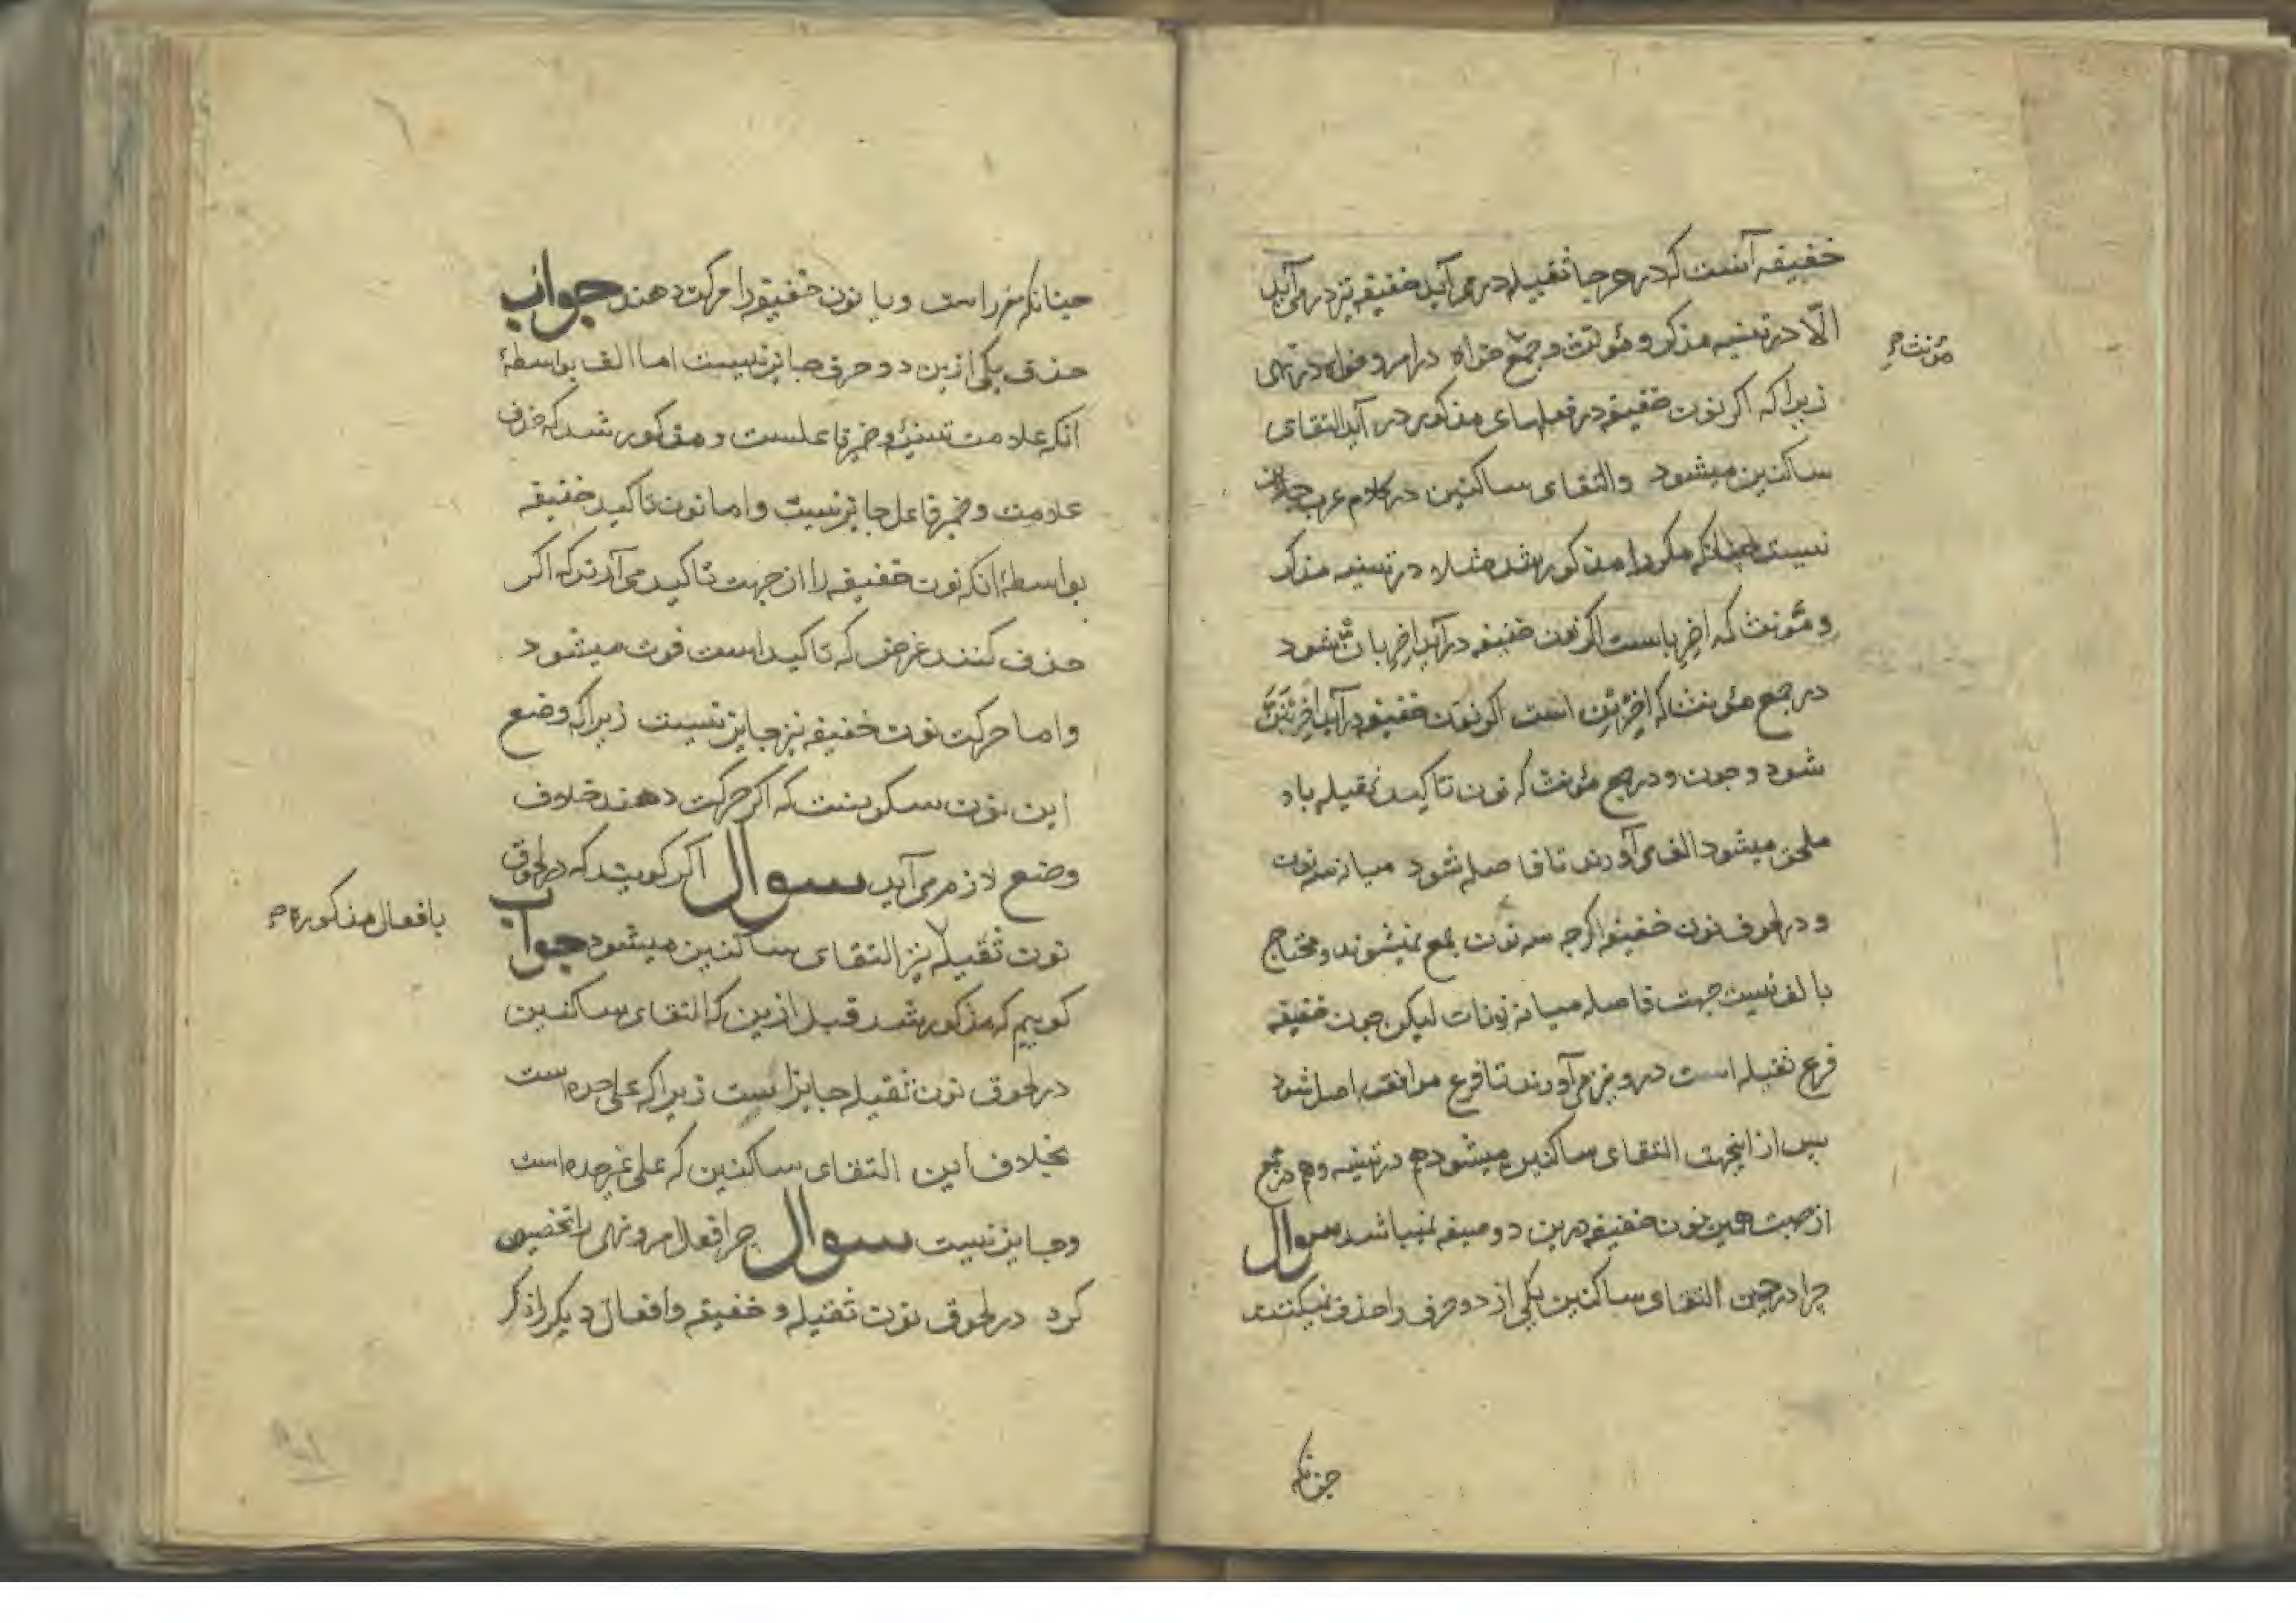 خفیفه آنست که در هر جا ثقیله در می آید خفیفه نیز در می آید
الّا در تثنیه مذکر و مؤنث و جمع خواه در امر و خواه در نهی
مؤنث صح
زیرا که اکر نون خفیفه در فعلهای مذکور در آید التقای
ساکنین میشود والتقای ساکنین در کلام عرب جایز
نیست چنانکه مکررا مذکور شد مثلا در تثنیه مذکر
و مؤنث که اضربا ست اکر نون خفیفه در آید اضربانْ شود
در جمع مؤنث که اضربن است اکر نون خفیفه در آید اضربنن
شود و چون و در جمع مؤنث که نون تاکید ثقیله باو
ملحق میشود الف می آورند تا فاصله شود میانه سه نون
و در لحوق نون خفیفه اکرچه سه نون جمع نمیشوند و محتاج
بالف نیست جهت فاصله میانه نونات لیکن چون خفیفه
فرع ثقیله است درو نیز می آورند تا فرع موافق اصل شود
پس از اینجهت التقای ساکنین میشود هم در تثنیه و هم در جمع
از جهت همین نون خفیفه درین دو صیغه نمیباشد سوال
چرا در حین التقای ساکنین یکی از دو حرف را حذف نمیکنند
چنانکه
چنانکه مقرر است و یا نون خفیفه را حرکت دهند جواب
حذف یکی ازین دو حرف جایز نیست اما الف بواسطهٔ
انکه علامت تثنیه و ضمیر فاعلست و مذکور شد که حذف
علامت و ضمیر فاعل جایز نیست و اما نون تاکید خفیفه
بواسطهٔ انکه نون خفیفه را از جهت تاکید می آرند که اکر
حذف کنند غرض که تاکید است فوت میشود
و اما حرکت نون خفیفه نیز جایز نیست زیرا که وضع
این نون سکونست که اکر حرکت دهند خلاف
وضع لازم می آید سوال اکر کویند که در لحوق
نون ثقیله نیز التقای ساکنین میشود جواب
بافعال مذکوره صح
کوییم که مذکور شد قبل ازین که التقای ساکنین
در لحوق نون ثقیله جایز است زیرا که علی حده است
بخلاف این التقای ساکنین که علی غیر حده است
و جایز نیست سوال چرا فعل امر و نهی را تخصیص
کرد در لحوق نون ثقیله و خفیفه و افعال دیکر را ذکر